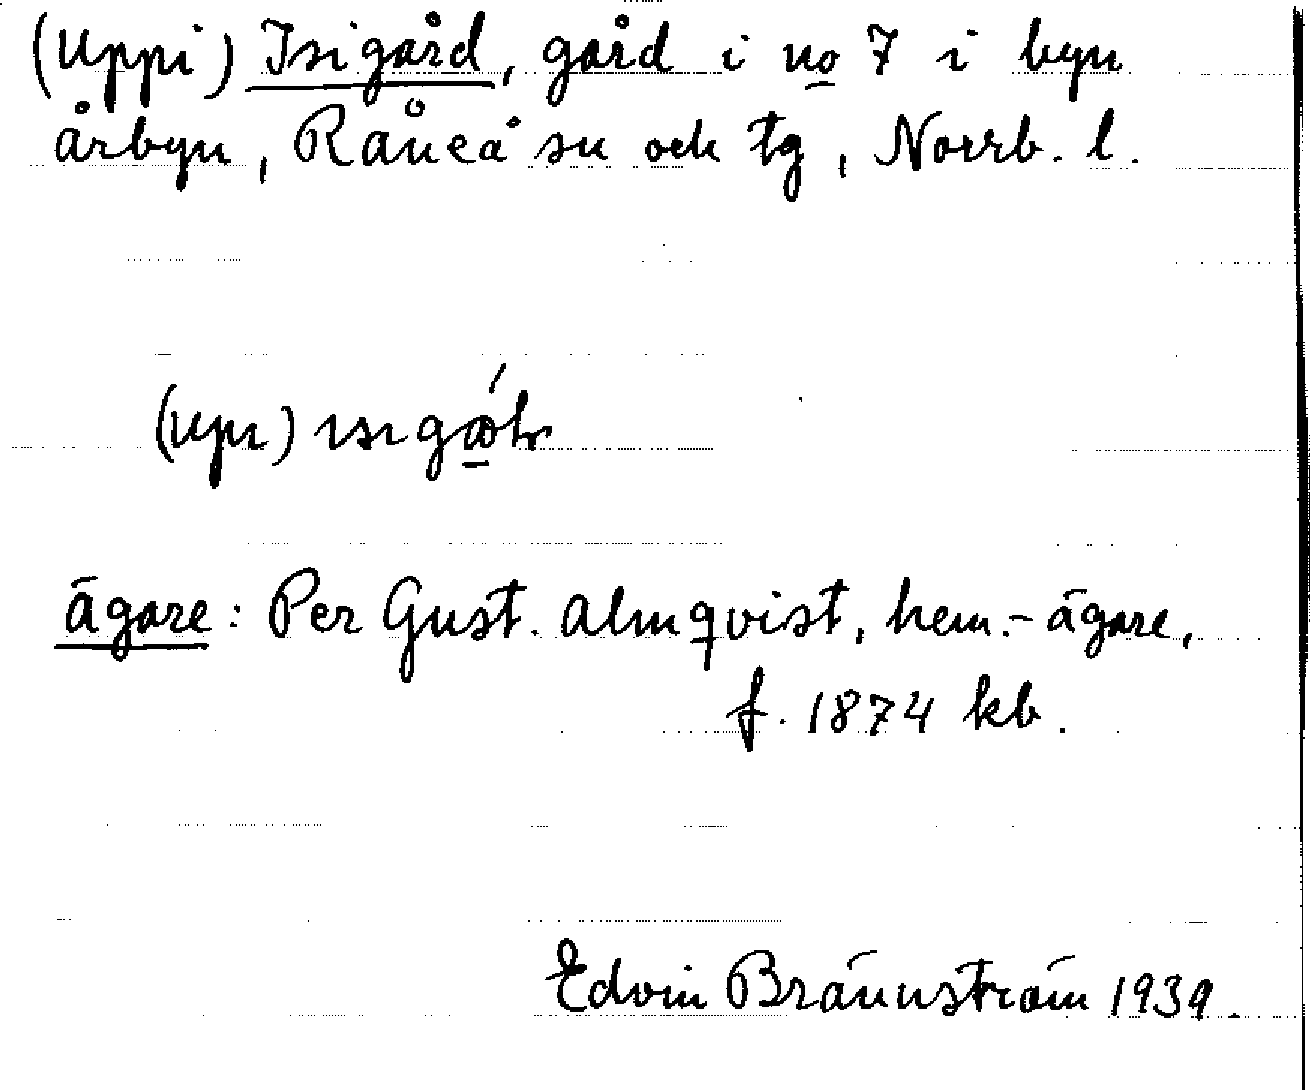 (Uppi) Isigård, gård i no 7 i byn
årbyn, Råneå sn och tg, Norrb. l.
(upı)
ägare: Per Gust. Almqvist, hem.-ägare,
f. 1874 kb.
Edvin Brännström 1939.